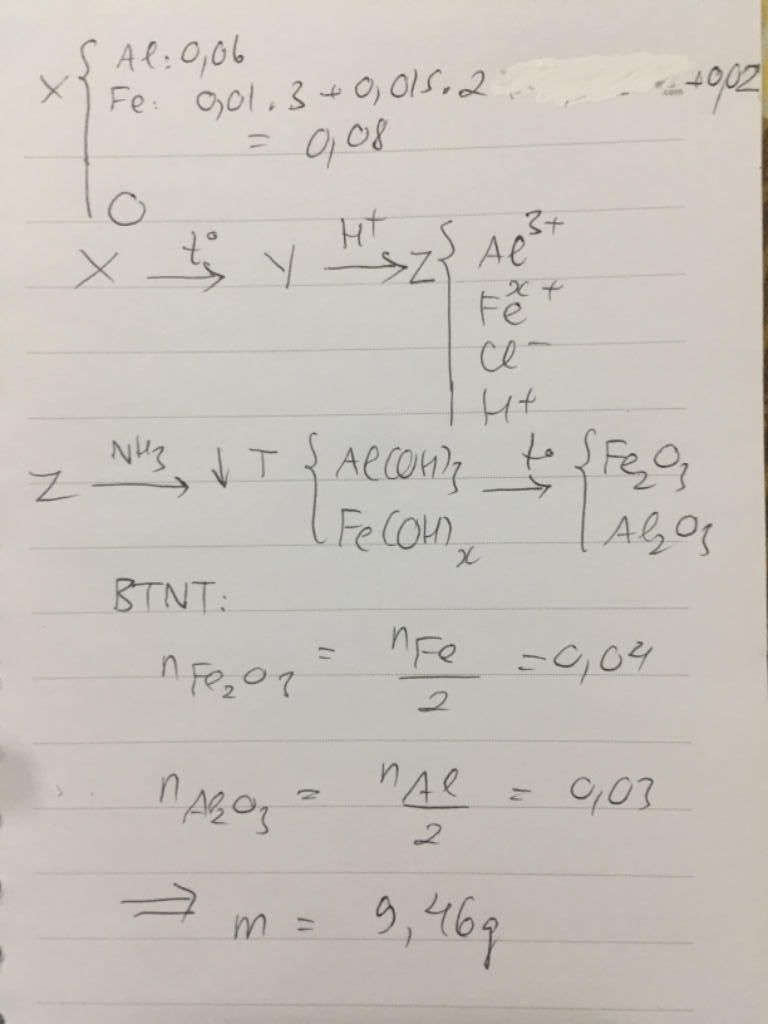 X { Al: 0,06
Fe: 0,01 . 3 + 0,015 . 2 +0,02
= 0,08
O
X →(t°) Y →(H+) Z { Al³⁺
Feˣ⁺
Cl⁻
H+
Z →(NH3) ↓ T { Al(OH)3 →(t°) { Fe2O3
Fe(OH)x Al2O3
BTNT:
nFe2O3 = nFe/2 = 0,04
nAl2O3 = nAl/2 = 0,03
⇒ m = 9,46g